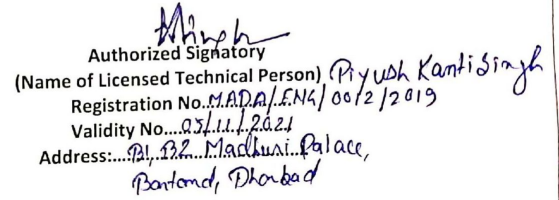 Authorized Signatory
(Name of Licensed Technical Person) Piyush Kanti Singh
Registration No..MADA/ENG/0012/2019
Validity No....05/11/2021
Address:...B1, B2 Madhuri Palace,
Dhanbad